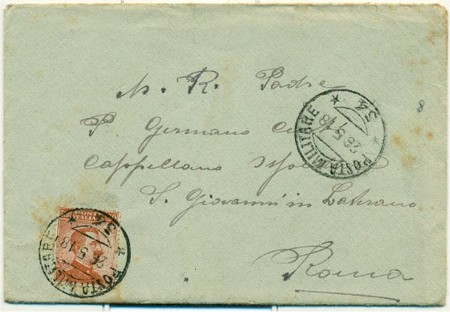 M. R. Padre
P. Germano
Cappellano
S. Giovanni in Laterano
Roma
POSTA MILITARE
26.5.18
POSTA MILITARE
5.18
8